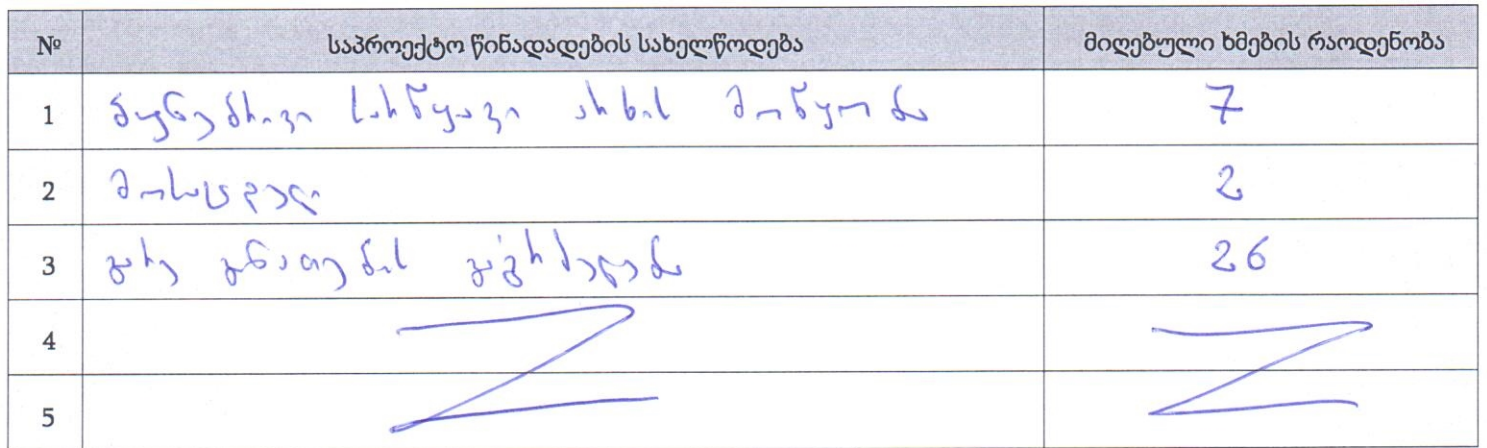 № საპროექტო წინადადების სახელწოდება მიღებული ხმების რაოდენობა
1 ბუნებრივი სარწყავი არხის მოწყობა 7
2 მოსაცდელი 2
3 გარე განათების გაგრძელება 26
4
5